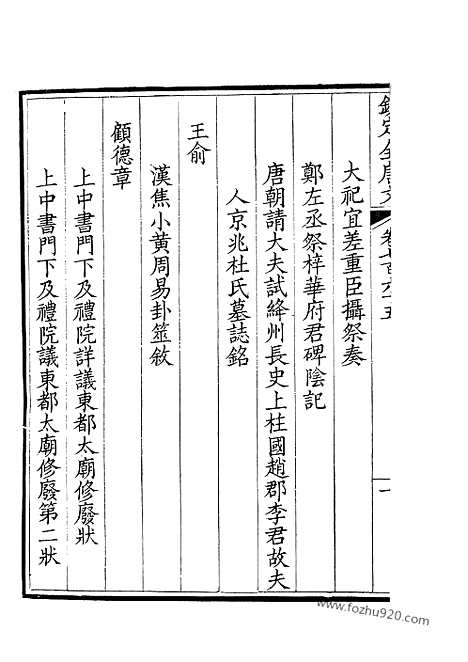 欽定全唐文
卷七百六十五
一
大祀宜差重臣攝祭奏
鄭左丞祭梓華府君碑陰記
唐朝請大夫試絳州長史上柱國趙郡李君故夫
人京兆杜氏墓誌銘
王俞
漢焦小黃周易卦筮敘
顧德章
上中書門下及禮院詳議東都太廟修廢狀
上中書門下及禮院議東都太廟修廢第二狀
www.fozhu920.com